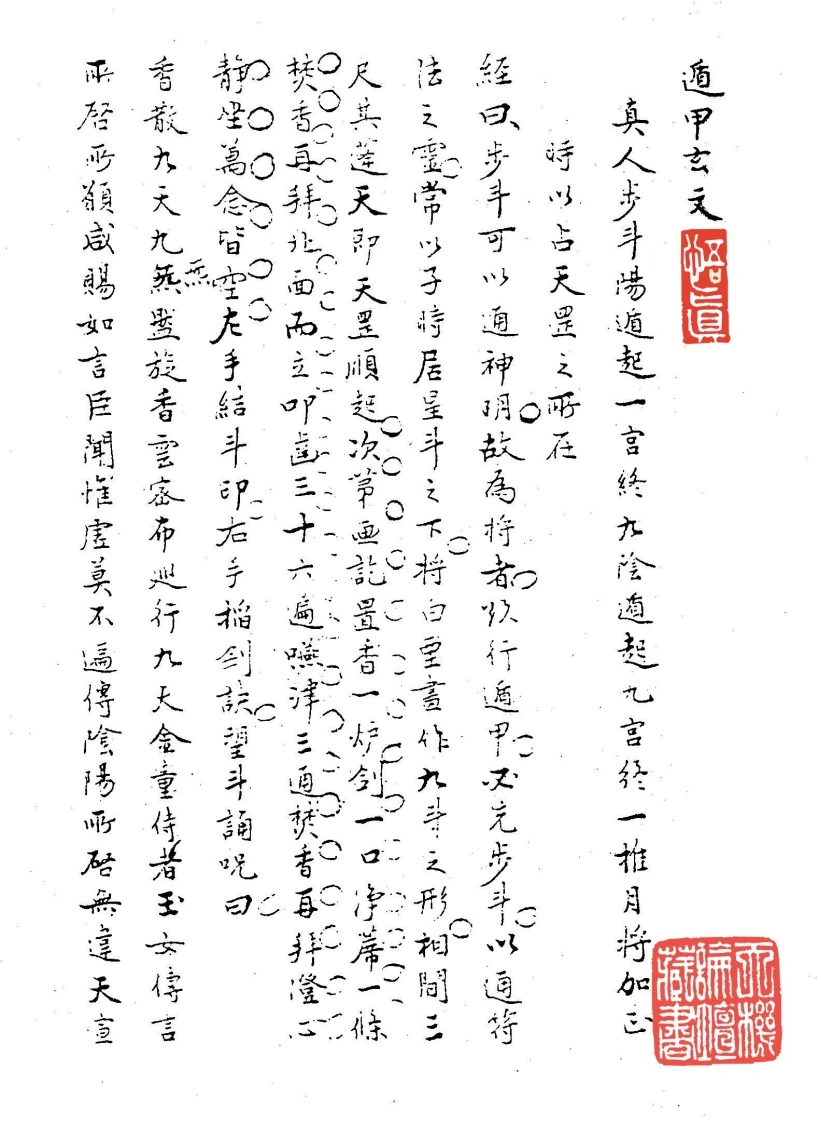 遁甲玄文
悟真
真人步斗陽遁起一宫終九陰遁起九宫終一推月将加正
時以占天罡之所在
經曰步斗可以通神明故為将者欲行遁甲必先步斗以通符
法之靈常以子時居星斗之下将白堊畫作九斗之形相間三
尺其蓬天即天罡順起次第画訖置香一炉剑一口净蓆一條
焚香再拜北面而立叩齒三十六遍嚥津三通焚香再拜澄心
静坐萬念皆空左手結斗印右手稻剑訣望斗誦呪曰
香散九天九炁盤旋香雲密布廵行九天金童侍者玉女傳言
炁
所啓所願咸賜如言臣聞惟虚莫不遍傳陰陽所啓無違天宣
天機論壇藏書